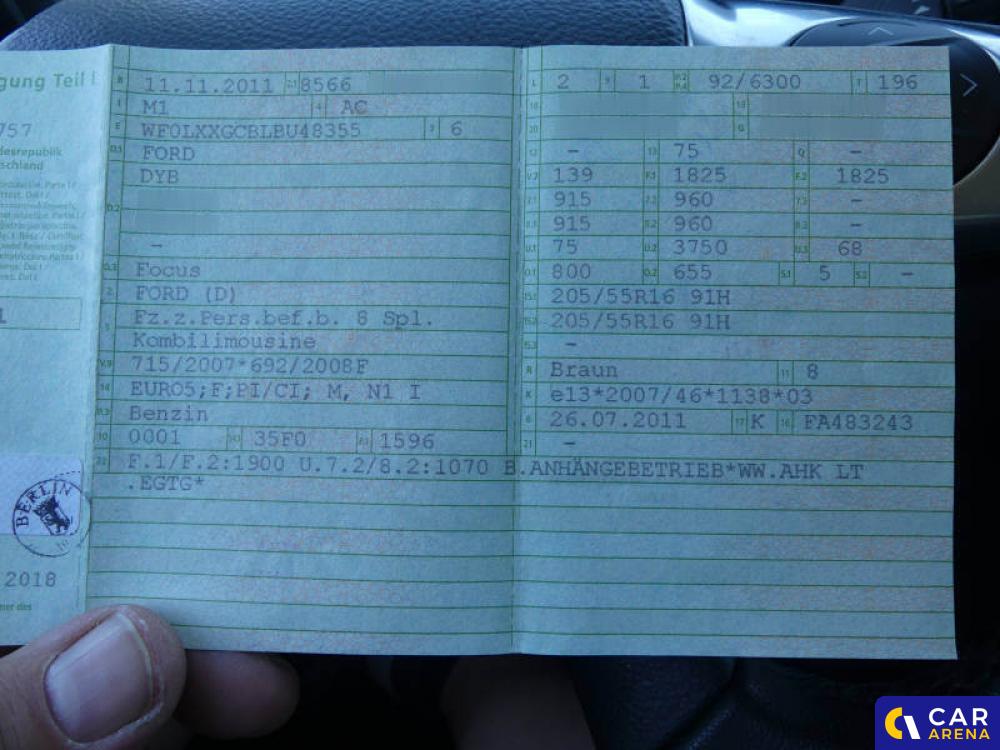 gung Teil I
757
desrepublik
schland
1
BERLIN
2018
B 11.11.2011 2.1 8566
J M1 4 AC
E WF0LXXGCBLBU48355 3 6
D.1 FORD
DYB
D.2
–
D.3 Focus
2 FORD (D)
5 Fz.z.Pers.bef.b. 8 Spl.
Kombilimousine
V.9 715/2007*692/2008F
14 EURO5;F;PI/CI; M, N1 I
P.3 Benzin
10 0001 14.1 35F0 P.1 1596
22 F.1/F.2:1900 U.7.2/8.2:1070 B.ANHÄNGEBETRIEB*WW.AHK LT
.EGTG*
L 2 9 1 P.2 P.4 92/6300 T 196
18 19
20 G
12 – 13 75 Q –
V.7 139 F.1 1825 F.2 1825
7.1 915 7.2 960 7.3 –
8.1 915 8.2 960 8.3 –
U.1 75 U.2 3750 U.3 68
O.1 800 O.2 655 S.1 5 S.2 –
15.1 205/55R16 91H
15.2 205/55R16 91H
15.3 –
R Braun 11 8
K e13*2007/46*1138*03
6 26.07.2011 17 K 16 FA483243
21 –
CAR
ARENA